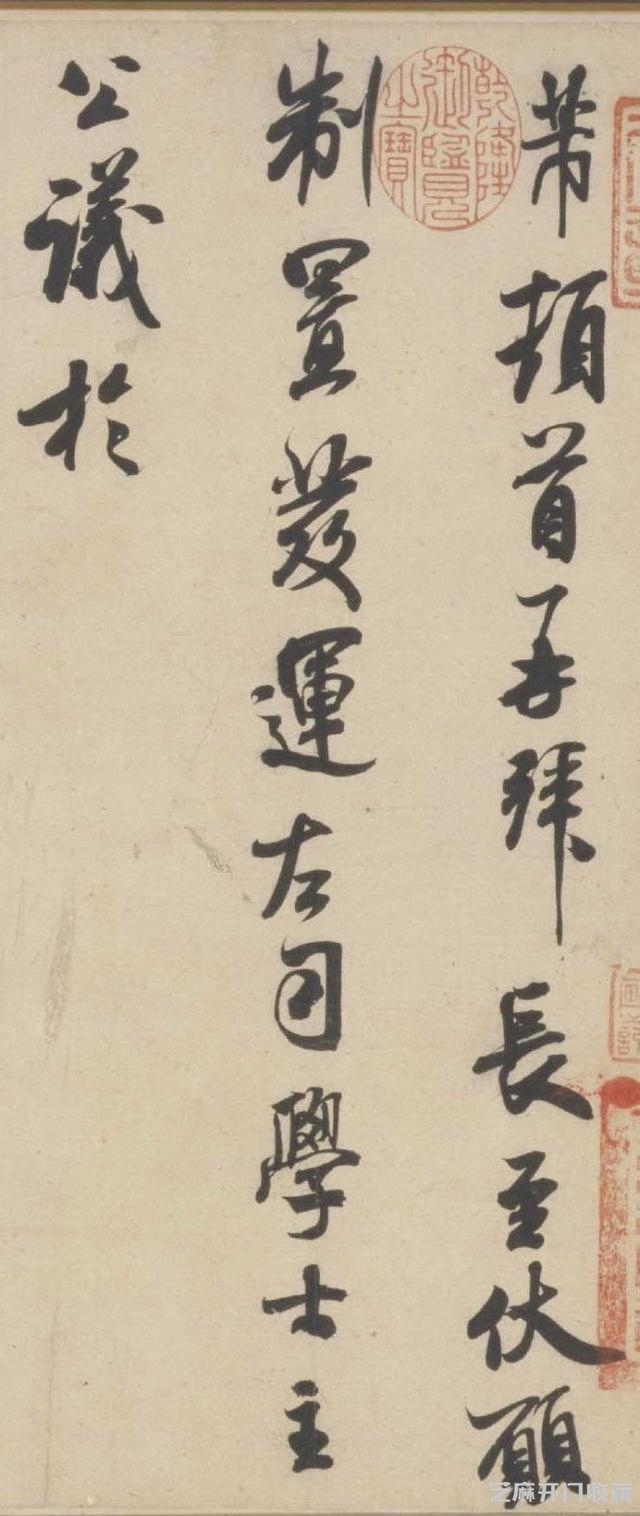 芾頓首再拜長至伏願
制置發運左司學士主
公議於
乾隆御覽之寶
芝麻开门收藏